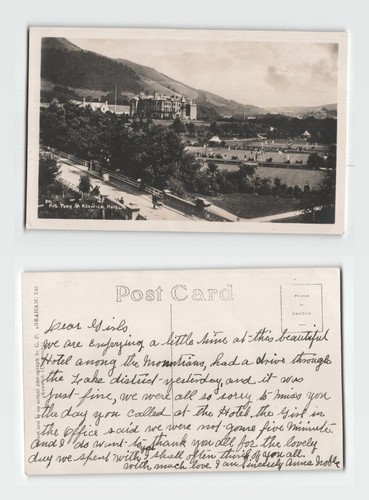 Park & Keswick Hotel
Post Card
Dear Girls
we are enjoying a little time at this beautiful
Hotel among the Mountians, had a drive through
the Lake district yesterday, and it was
just fine, we were all so sorry to miss you
the day you called at the Hotel the Girl in
the Office said we were not gone five Minute.
and I do want to thank you all for the lovely
day we spent with you I shall often think of you all.
with much love I am sincerely Anna